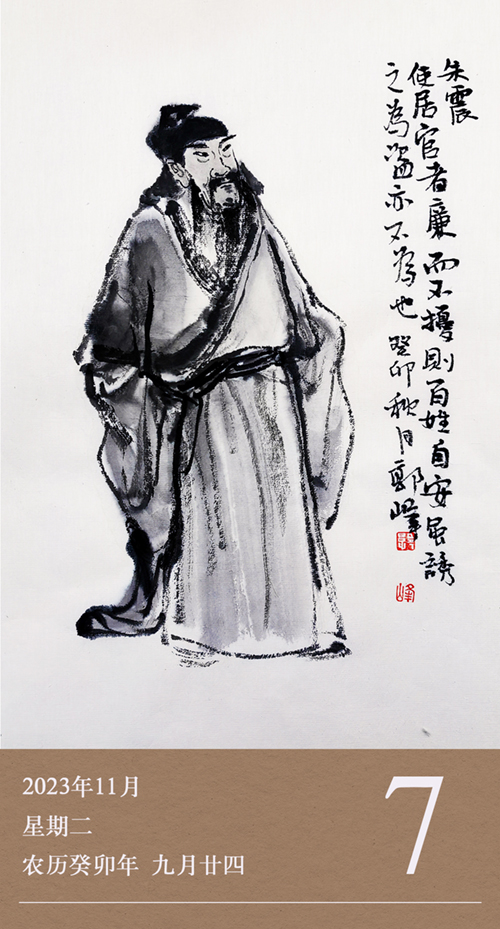 朱震
使居官者廉而不擾則百姓自安虽誘
之為盗亦不為也 癸卯秋月郭峰
峰
2023年11月
星期二
农历癸卯年 九月廿四
7